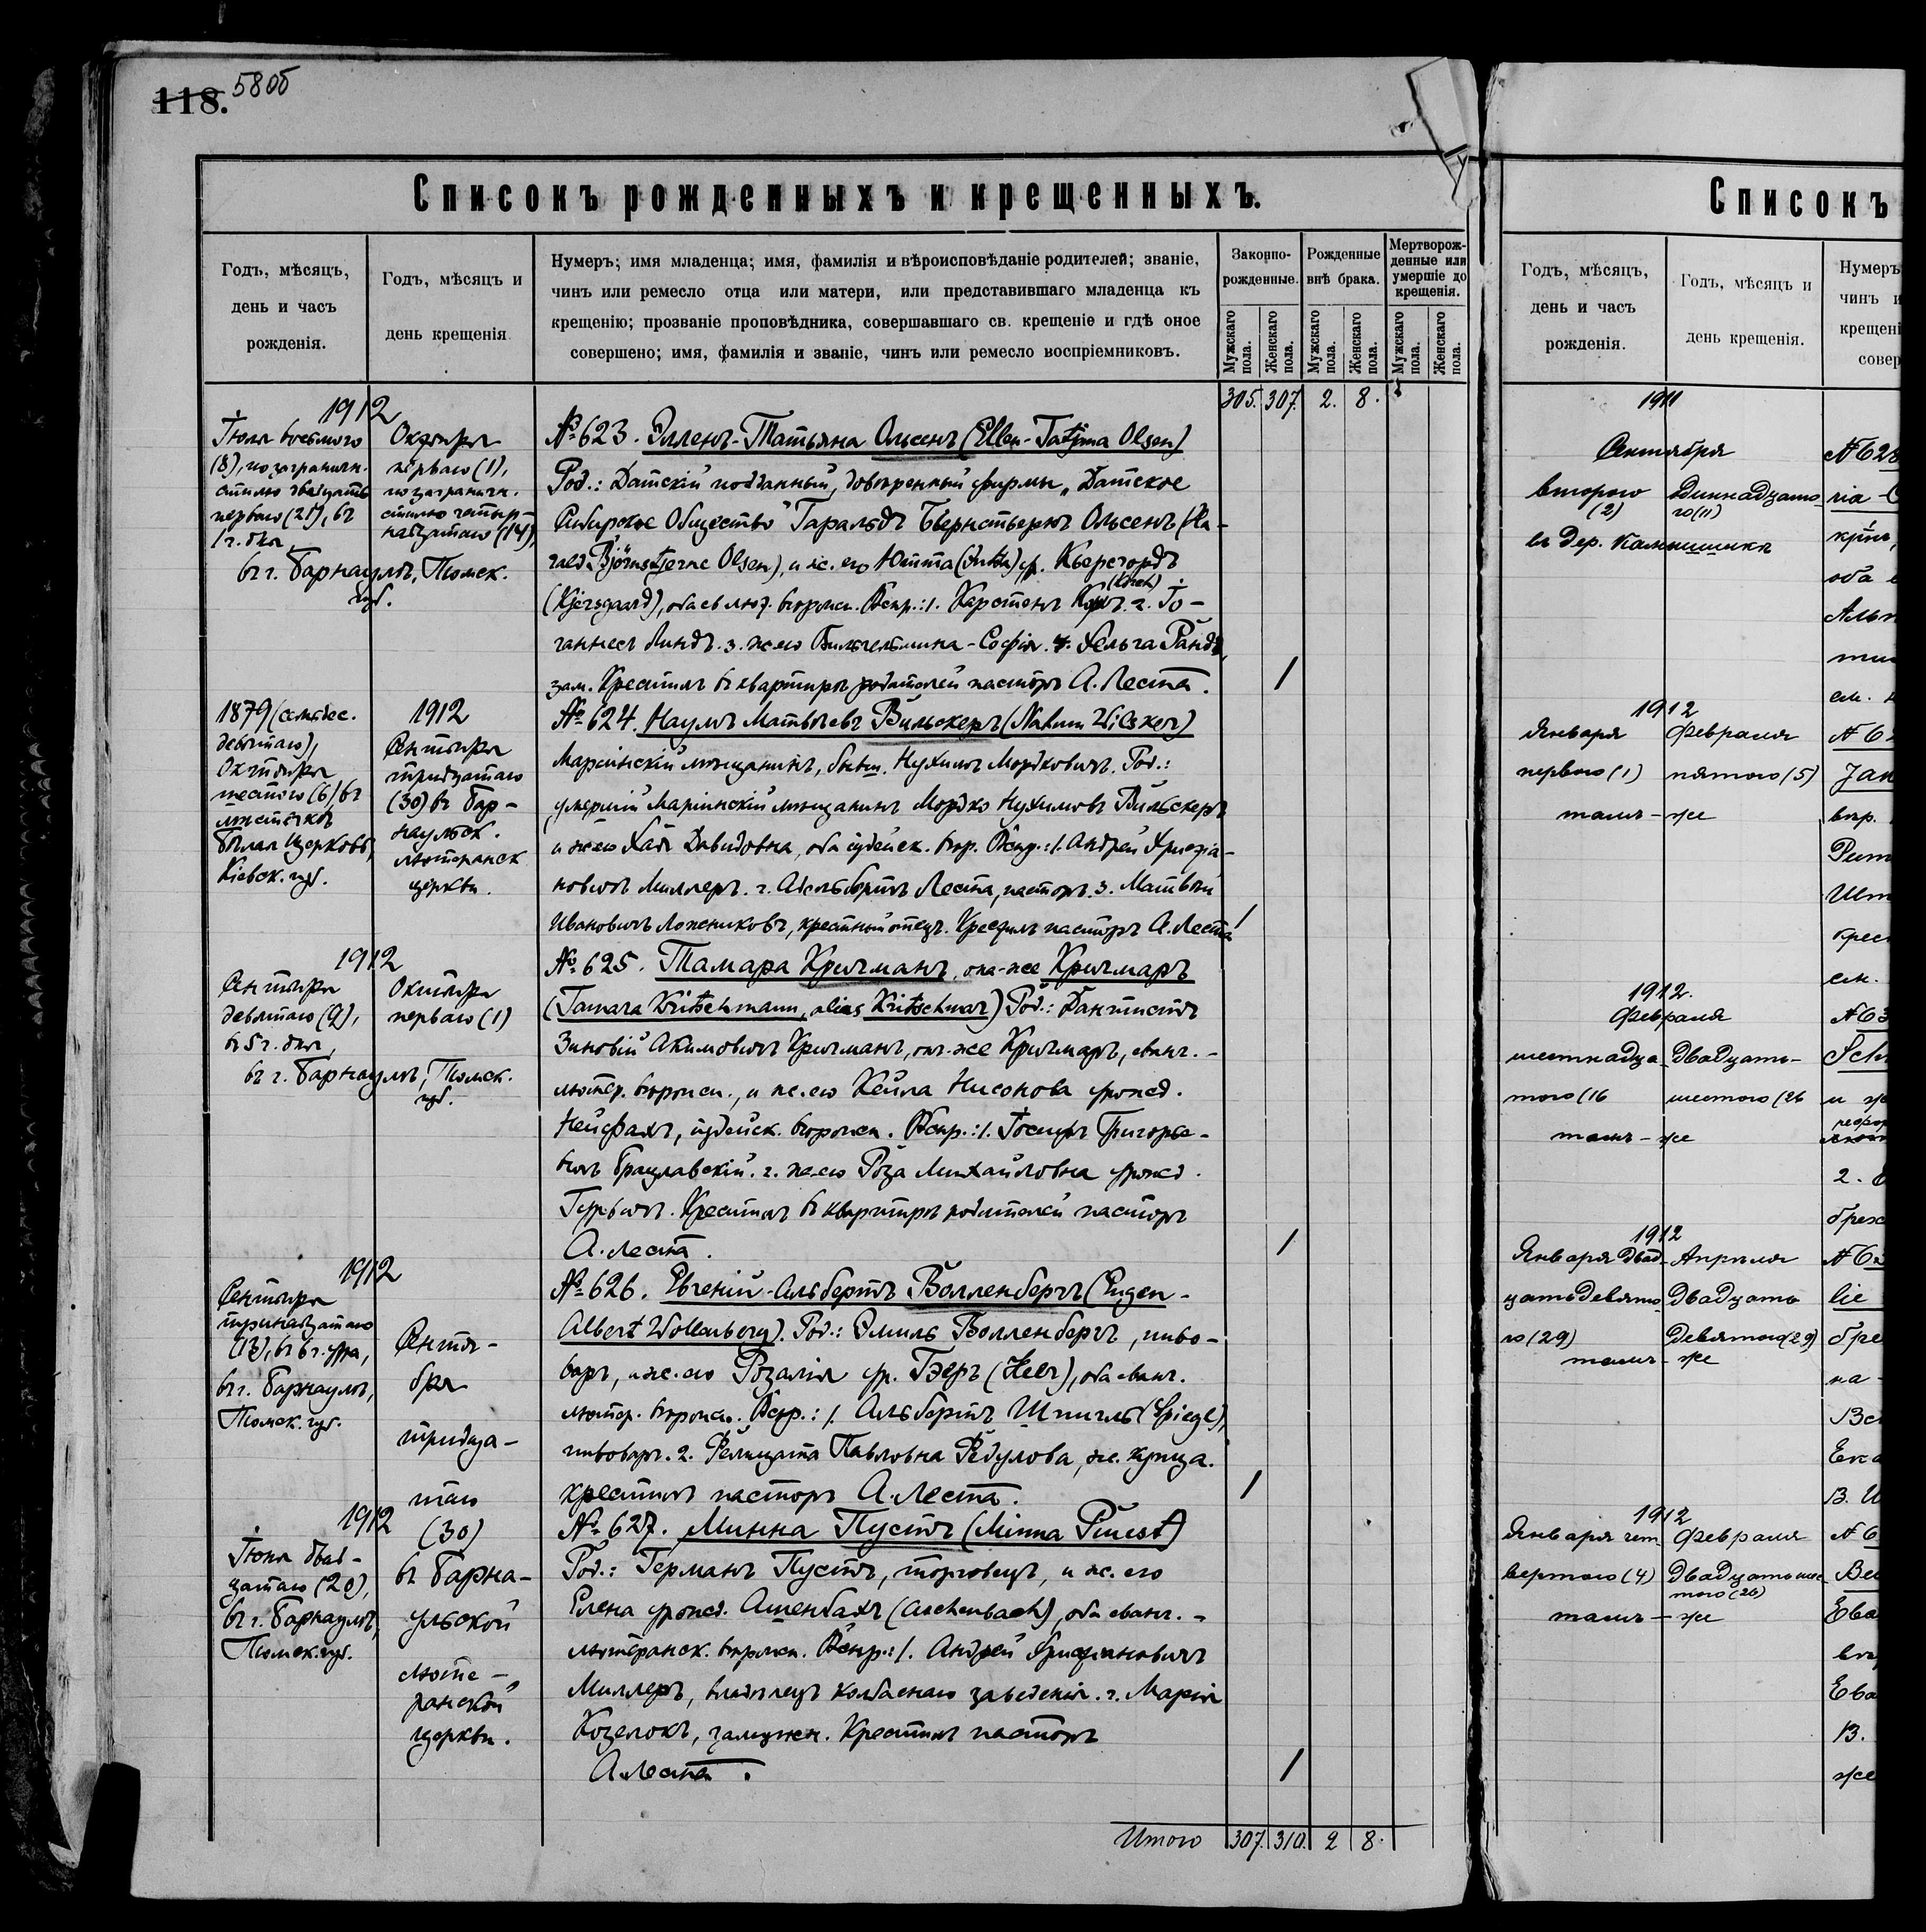 118. 58об
Списокъ рожденныхъ и крещенныхъ.
Годъ, мѣсяцъ,
день и часъ
рожденія.
Годъ, мѣсяцъ и
день крещенія
Нумеръ; имя младенца; имя, фамилія и вѣроисповѣданіе родителей; званіе,
чинъ или ремесло отца или матери, или представившаго младенца къ
крещенію; прозваніе проповѣдника, совершавшаго св. крещеніе и гдѣ оное
совершено; имя, фамилія и званіе, чинъ или ремесло воспріемниковъ.
Законно-
рожденные.
Рожденные
внѣ брака.
Мертворож-
денные или
умершіе до
крещенія.
Мужскаго пола.
Женскаго пола.
Мужскаго пола.
Женскаго пола.
Мужскаго пола.
Женскаго пола.
305. 307. 2. 8.
1912
Іюля восьмого
(8), по заграничн.
стилю двадцать
перваго (21), въ
1 ч. дня,
въ г. Барнаулѣ, Томск.
губ.
Октября
перваго (1),
по заграничн.
стилю четыр-
надцатаго (14),
№ 623. Элленъ-Татьяна Ольсенъ (Ellen-Tatjana Olsen)
Род.: Датскій подданный, довѣренный фирмы „Датское
Сибирское Общество" Гаральдъ Бьернстьерне Ольсенъ (Ha-
rald Björnstjerne Olsen), и ж. его Ютта (Jutta) ур. Кьерсгордъ
(Kjersgaard), оба ев. лют. вѣроисп. Воспр.: 1. Карстенъ Кохъ (Koch). 2. Іо-
ганнесъ Линдъ. 3. жена Вильгельмина-Софія. 4. Хельга Рандъ,
зам. Крестилъ въ квартирѣ родителей пасторъ А. Леста. /
1879 (семьдес.
девятаго),
Октября
шестого (6) въ
мѣстечкѣ
Бѣлая Церковь,
Кіевск. губ.
1912
Сентября
тридцатаго
(30) въ Бар-
наульск.
лютеранск
церкви.
№ 624. Наумъ Матвѣевъ Вильскеръ (Nahum Wilsker)
Маріинскій мѣщанинъ, бывш. Нухимъ Мордковичъ. Род.:
умершій Маріинскій мѣщанинъ Мордко Нухимовъ Вильскеръ
и жена Хая Давидовна, оба іудейск. вѣр. Воспр.: 1. Андрей Христіа-
новичъ Миллеръ. 2. Адельбертъ Леста, пасторъ. 3. Матвѣй
Ивановичъ Ложниковъ, крестный отецъ. Крестилъ пасторъ А. Леста /
1912
Сентября
девятаго (9),
въ 5 ч. дня,
въ г. Барнаулѣ, Томск.
губ.
Октября
перваго (1)
№ 625. Тамара Кричманъ, она-же Кричмаръ
(Tamara Kritschmann, alias Kritschmar) Род.: Дантистъ
Зиновій Акимовичъ Кричманъ, онъ-же Кричмаръ, еванг.-
лютер. вѣроисп., и ж. его Кейла Нисонова урожд.
Нейфахъ, іудейск. вѣроисп. Воспр.: 1. Іосифъ Григорье-
вичъ Брацлавскій. 2. жена Роза Михайловна урожд.
Гурвичъ. Крестилъ въ квартирѣ родителей пасторъ
А. Леста. /
1912
Сентября
тринадцатаго
(13), въ 6 ч. утра,
въ г. Барнаулѣ,
Томск. губ.
Сентя-
бря
тридца-
таго
(30)
въ Барна-
ульской
люте-
ранской
церкви.
№ 626. Евгеній-Альбертъ Волленбергъ (Eugen-
Albert Wollenberg). Род.: Эмиль Волленбергъ, пиво-
варъ, и ж. его Розалія ур. Гэеръ (Heer), оба еванг.
лютер. вѣроисп. Воспр.: 1. Альбертъ Шпигль (Spiegl),
пивоваръ. 2. Фелицата Павловна Федулова, ж. купца.
Крестилъ пасторъ А. Леста. /
1912
Іюня двад-
цатаго (20),
въ г. Барнаулѣ,
Томск. губ.
№ 627. Минна Пустъ (Minna Puust)
Род.: Германъ Пустъ, торговецъ, и ж. его
Елена урожд. Ашенбахъ (Aschenbach), оба еванг.-
лютеранск. вѣроисп. Воспр.: 1. Андрей Христіановичъ
Миллеръ, владѣлецъ колбаснаго заведенія. 2. Марія
Козелокъ, замужн. Крестилъ пасторъ
А. Леста. /
Итого 307. 310. 2 8.
Списокъ
Годъ, мѣсяцъ,
день и часъ
рожденія.
Годъ, мѣсяцъ и
день крещенія.
Нумеръ
чинъ и
крещені
совер
1911
Сентября
второго
(2)
Одиннадцато
го (11)
въ дер.
1912
Января Февраля
перваго (1) пятого (5)
тамъ-же
1912.
Февраля
шестнадца Двадцать-
того (16 шестого (26
тамъ-же
1912
Января двад- Апрѣля
цать девято Двадцать
го (29) девятого (29)
тамъ-же
1912
Января чет Февраля
вертого (4) Двадцать шес
того (26)
тамъ-же